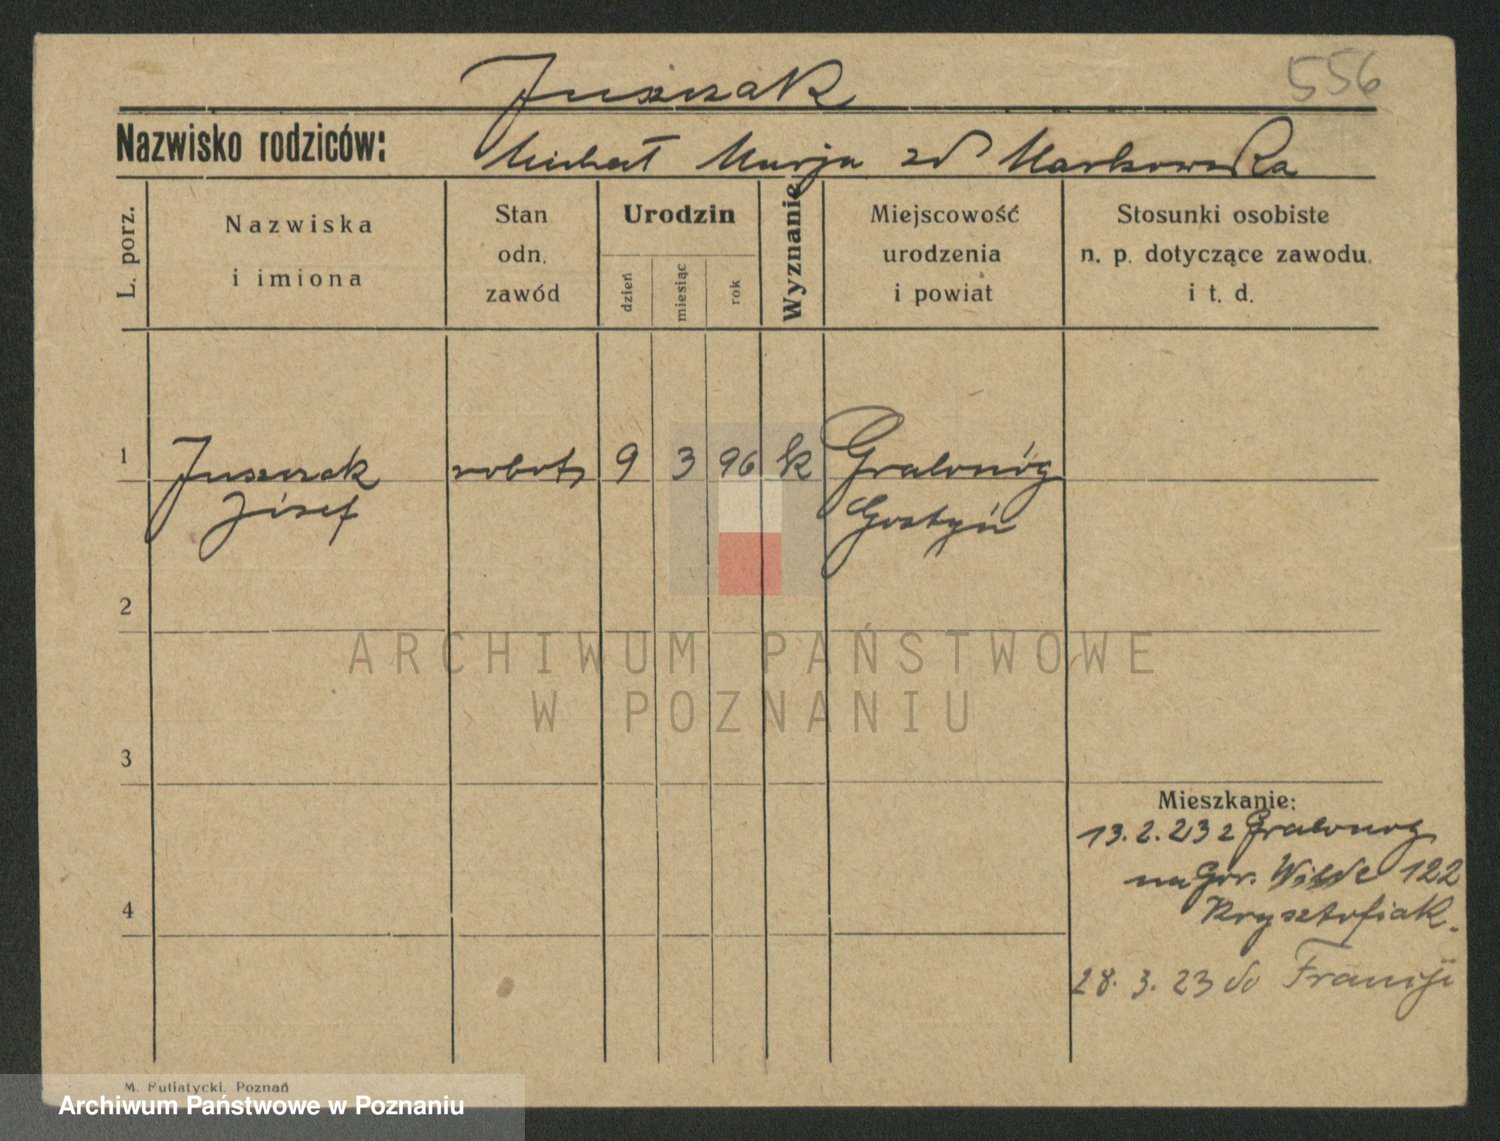 Juszczak 556
Nazwisko rodziców: Michał Marja zd Markowska
L. porz.
Nazwiska
i imiona
Stan
odn.
zawód
Urodzin
dzień
miesiąc
rok
Wyznanie
Miejscowość
urodzenia
i powiat
Stosunki osobiste
n. p. dotyczące zawodu.
i t. d.
1 Juszczak robot 9 3 96 k Gralonóg
Józef Gostyń
2
ARCHIWUM PAŃSTWOWE
W POZNANIU
3
Mieszkanie:
13.2.23 z Gralonog
na Gór. Wilde 122
4 Krysztofiak.
28.3.23 do Francji
M. Putiatycki, Poznań
Archiwum Państwowe w Poznaniu